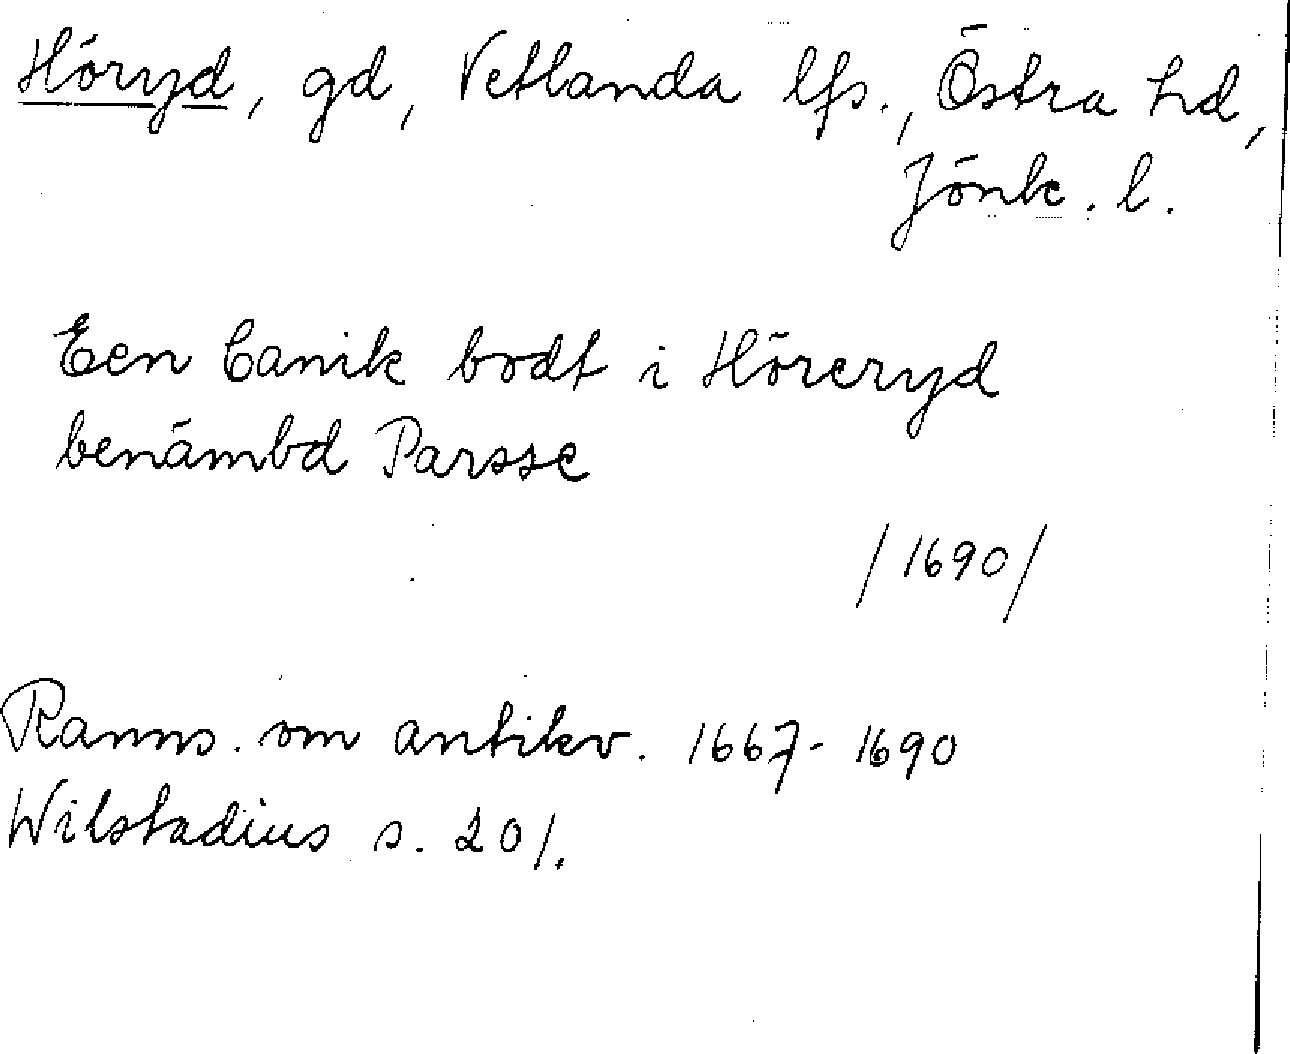 Höryd, gd, Vetlanda lfs., Östra hd,
Jönk. l.
Een Canik bodt i Höreryd
benämbd Parsse
/1690/
Ranns. om antikv. 1667-1690
Wilstadius s. 201.